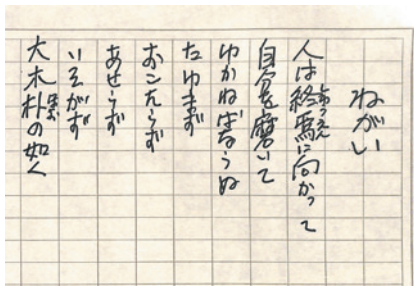 ねがい
人は終駅に向かって
自分を磨いて
ゆかねばならぬ
たゆまず
おこたらず
あせらず
いそがず
大木朴の如く